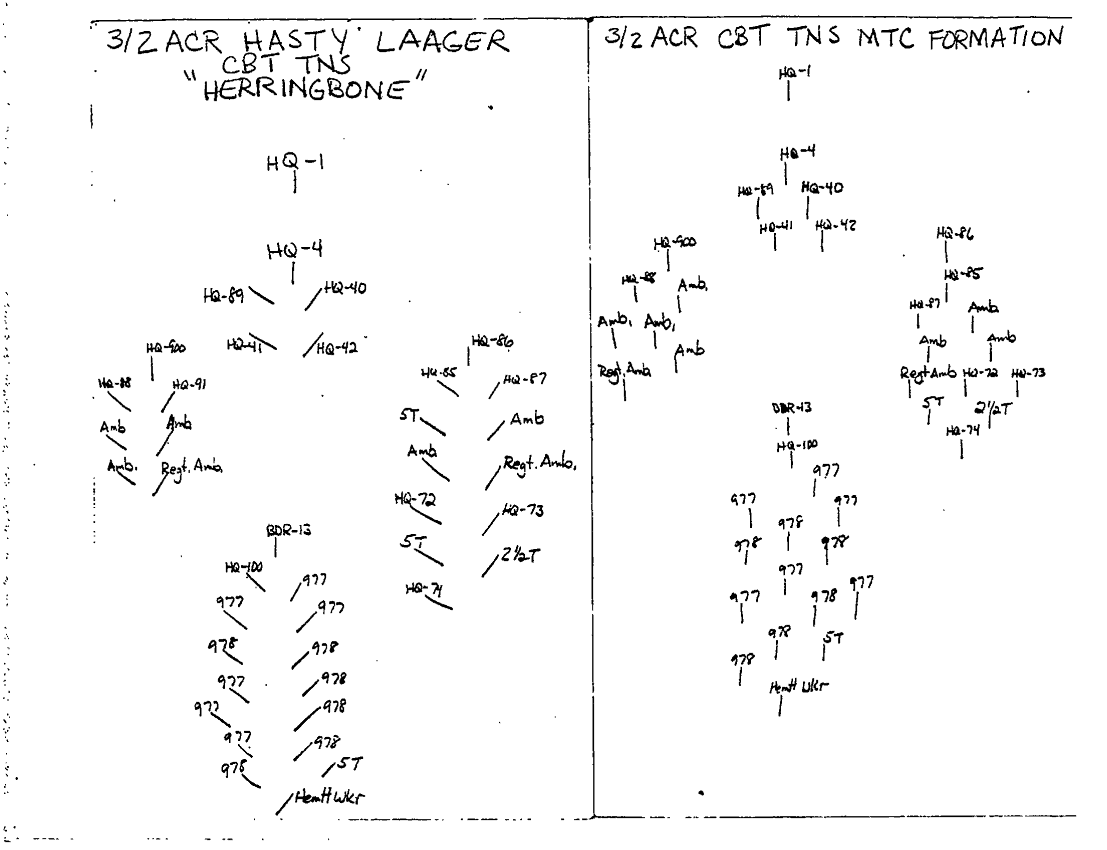 3/2 ACR HASTY LAAGER
CBT TNS
"HERRINGBONE"
HQ-1
HQ-4
HQ-89 HQ-40
HQ-41 HQ-42
HQ-900
HQ-88 HQ-91
Amb Amb
Amb. Regt. Amb.
HQ-86
HQ-85 HQ-87
5T Amb
Amb Regt. Amb.
HQ-72 HQ-73
5T 2½T
HQ-74
BDR-13
HQ-100 977
977 977
978 978
977 978
977 978
977 978
978 5T
HemH Wkr
3/2 ACR CBT TNS MTC FORMATION
HQ-1
HQ-4
HQ-89 HQ-40
HQ-41 HQ-42
HQ-900
HQ-88 Amb.
Amb. Amb.
Amb
Regt. Amb
HQ-86
HQ-85
HQ-87 Amb
Amb Amb
Regt Amb HQ-72 HQ-73
5T 2½T
HQ-74
BDR-13
HQ-100
977
977 977
978
978 978
977
977 978 977
978 5T
978
HemH Wkr